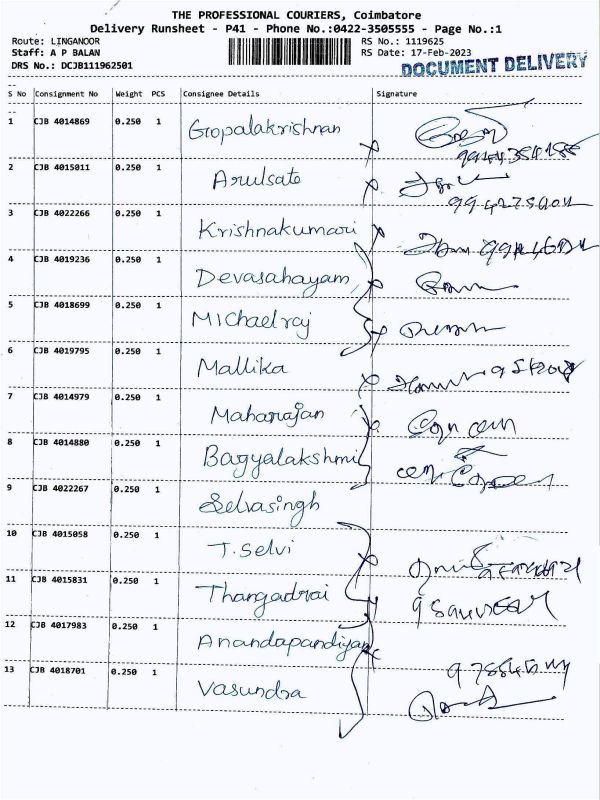 THE PROFESSIONAL COURIERS, Coimbatore
Delivery Runsheet - P41 - Phone No.:0422-3505555 - Page No.:1
Route: LINGANOOR RS No.: 1119625
Staff: A P BALAN RS Date: 17-Feb-2023
DRS No.: DCJB111962501 DOCUMENT DELIVERY
S No Consignment No Weight PCS Consignee Details Signature
1 CJB 4014869 0.250 1 Gopalakrishnan
2 CJB 4015011 0.250 1 Arulsate
3 CJB 4022266 0.250 1 Krishnakumari
4 CJB 4019236 0.250 1 Devasahayam
5 CJB 4018699 0.250 1 Michaelraj
6 CJB 4019795 0.250 1 Mallika
7 CJB 4014979 0.250 1 Maharajan
8 CJB 4014880 0.250 1 Bagyalakshmi
9 CJB 4022267 0.250 1 Selvasingh
10 CJB 4015058 0.250 1 T. Selvi
11 CJB 4015831 0.250 1 Thangadrai
12 CJB 4017983 0.250 1 Anandapandiyan
13 CJB 4018701 0.250 1 Vasundra